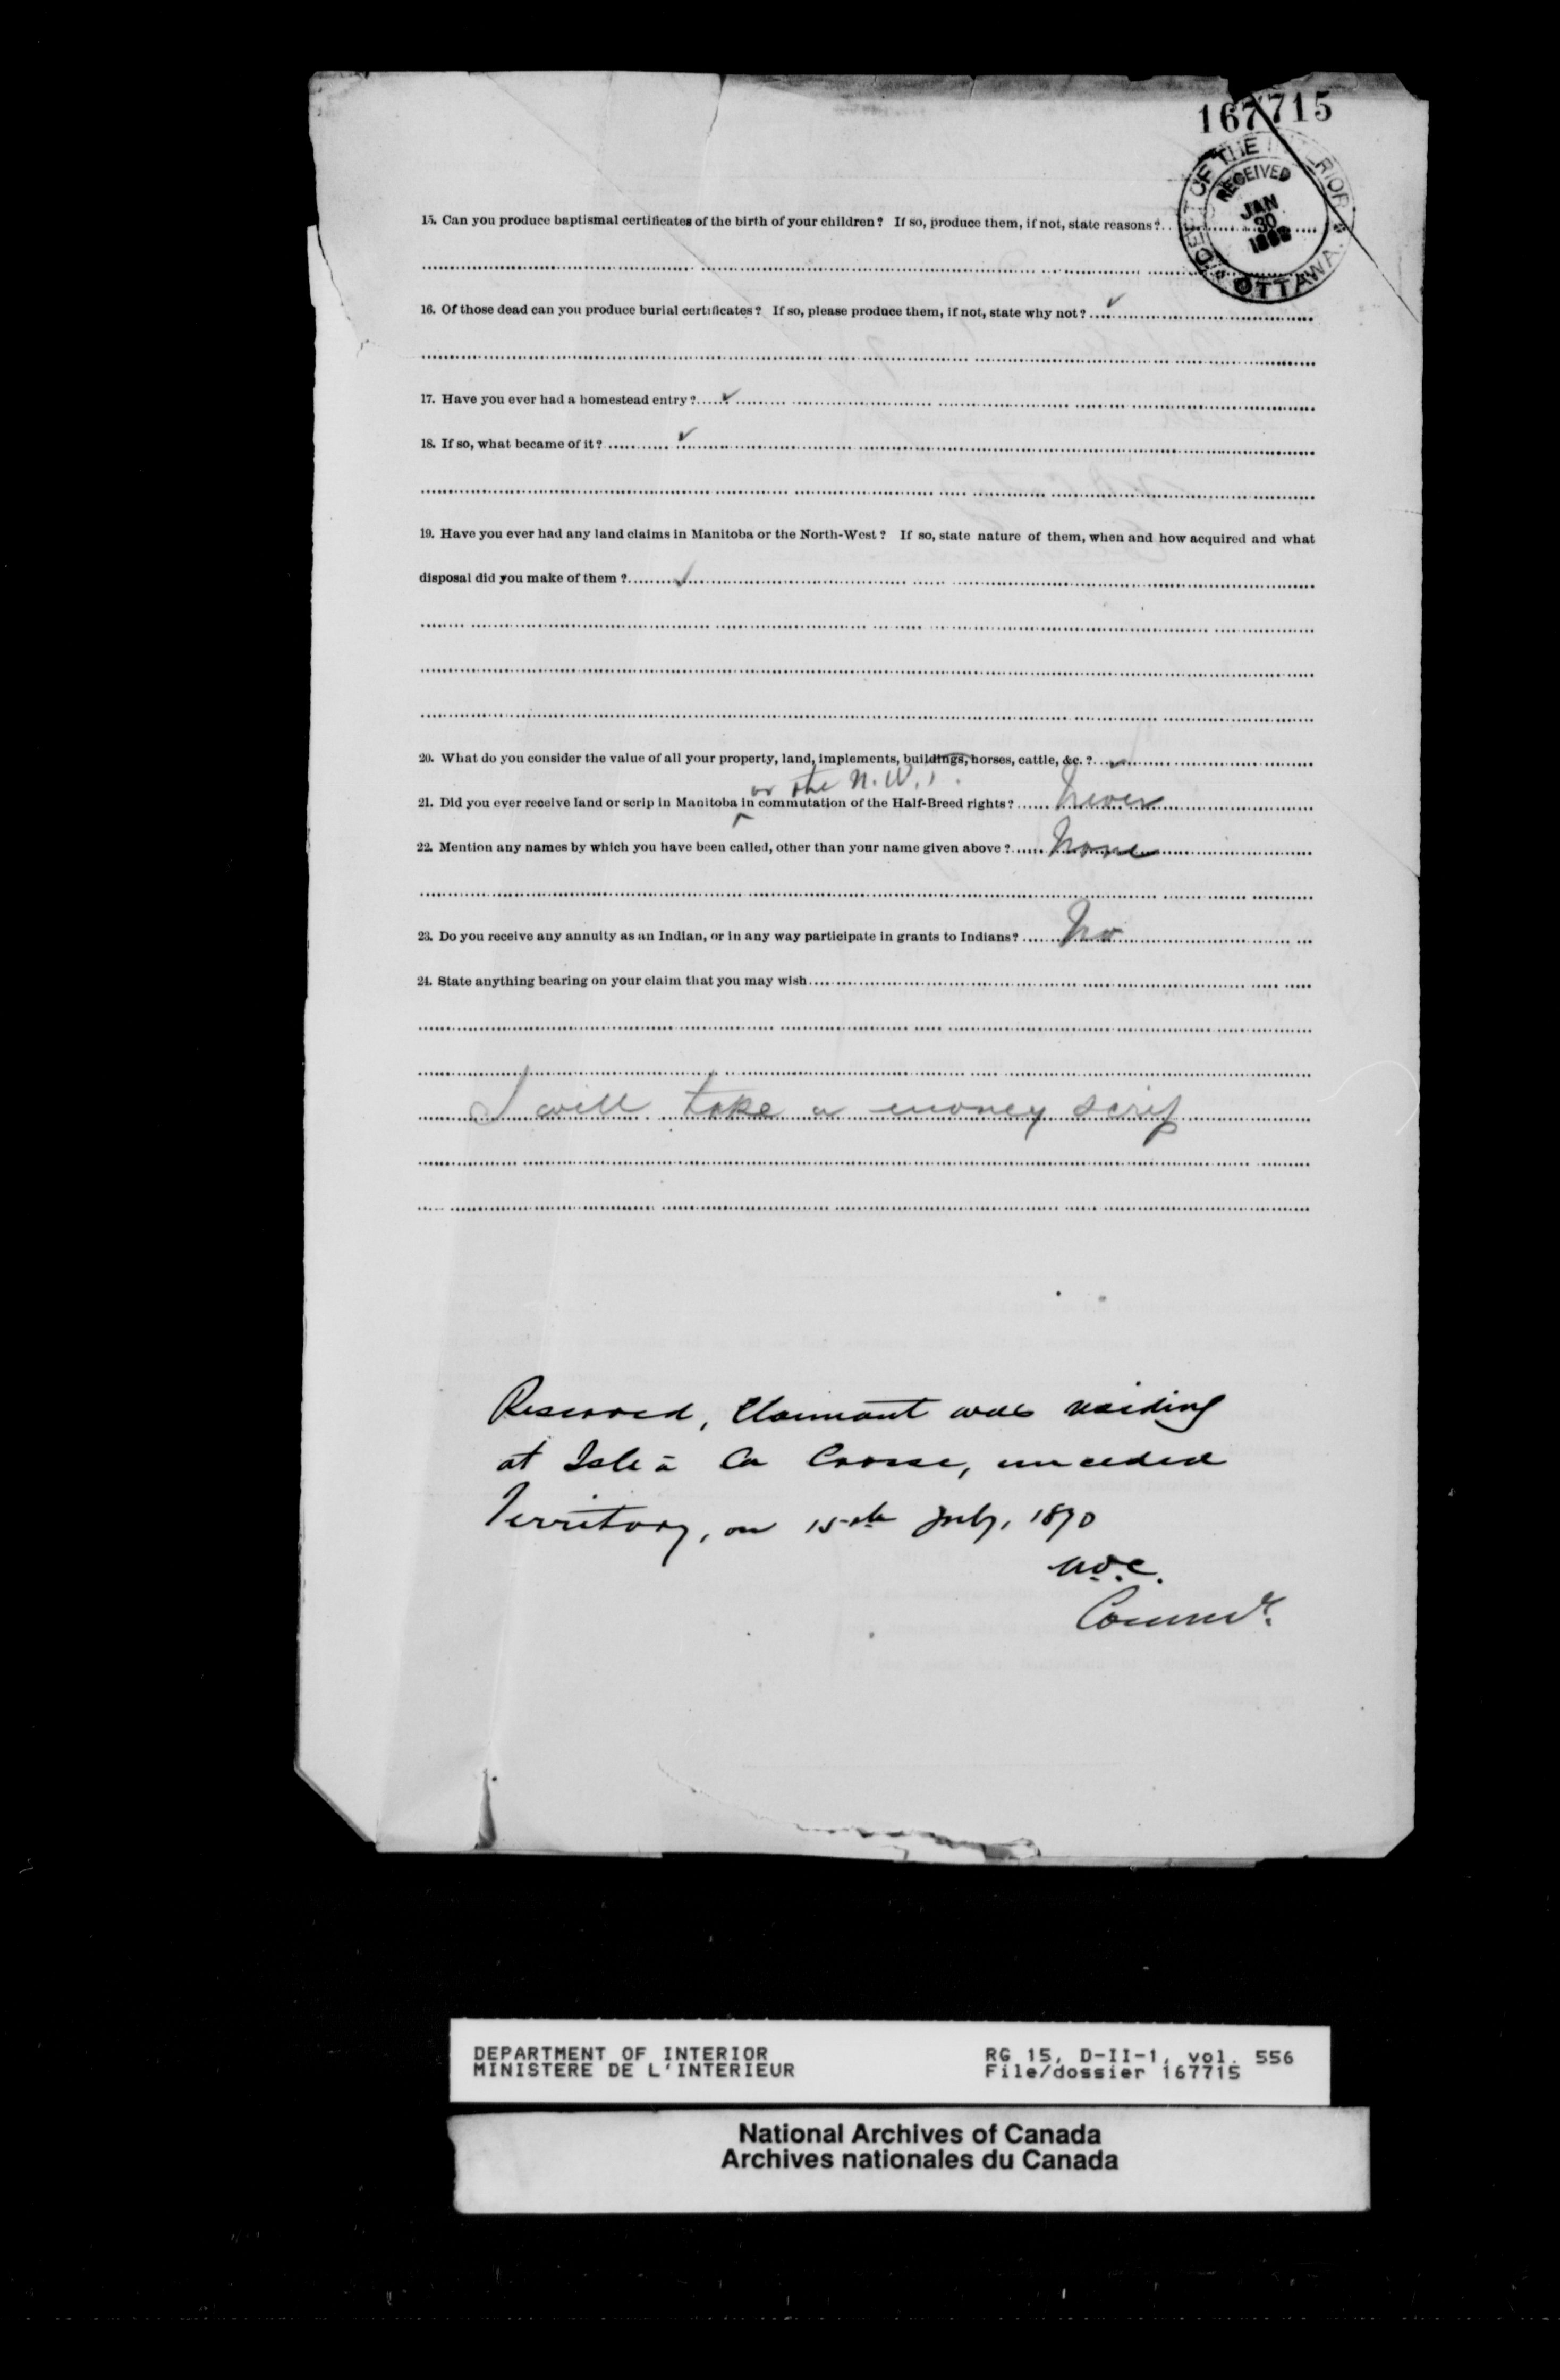 167715
DEPT OF THE INTERIOR
RECEIVED
JAN
30
OTTAWA
15. Can you produce baptismal certificates of the birth of your children? If so, produce them, if not, state reasons?
16. Of those dead can you produce burial certificates? If so, please produce them, if not, state why not? ✓
17. Have you ever had a homestead entry? ✓
18. If so, what became of it? ✓
19. Have you ever had any land claims in Manitoba or the North-West? If so, state nature of them, when and how acquired and what
disposal did you make of them? ✓
20. What do you consider the value of all your property, land, implements, buildings, horses, cattle, &c.? ✓
or the N.W.
21. Did you ever receive land or scrip in Manitoba in commutation of the Half-Breed rights? Never
22. Mention any names by which you have been called, other than your name given above? None
23. Do you receive any annuity as an Indian, or in any way participate in grants to Indians? No
24. State anything bearing on your claim that you may wish
I will take a money scrip
Reserved, Claimant was residing
at Isle à la Crosse, unceded
Territory, on 15th July, 1870
Commr.
DEPARTMENT OF INTERIOR
MINISTERE DE L'INTERIEUR
RG 15, D-II-1, vol. 556
File/dossier 167715
National Archives of Canada
Archives nationales du Canada